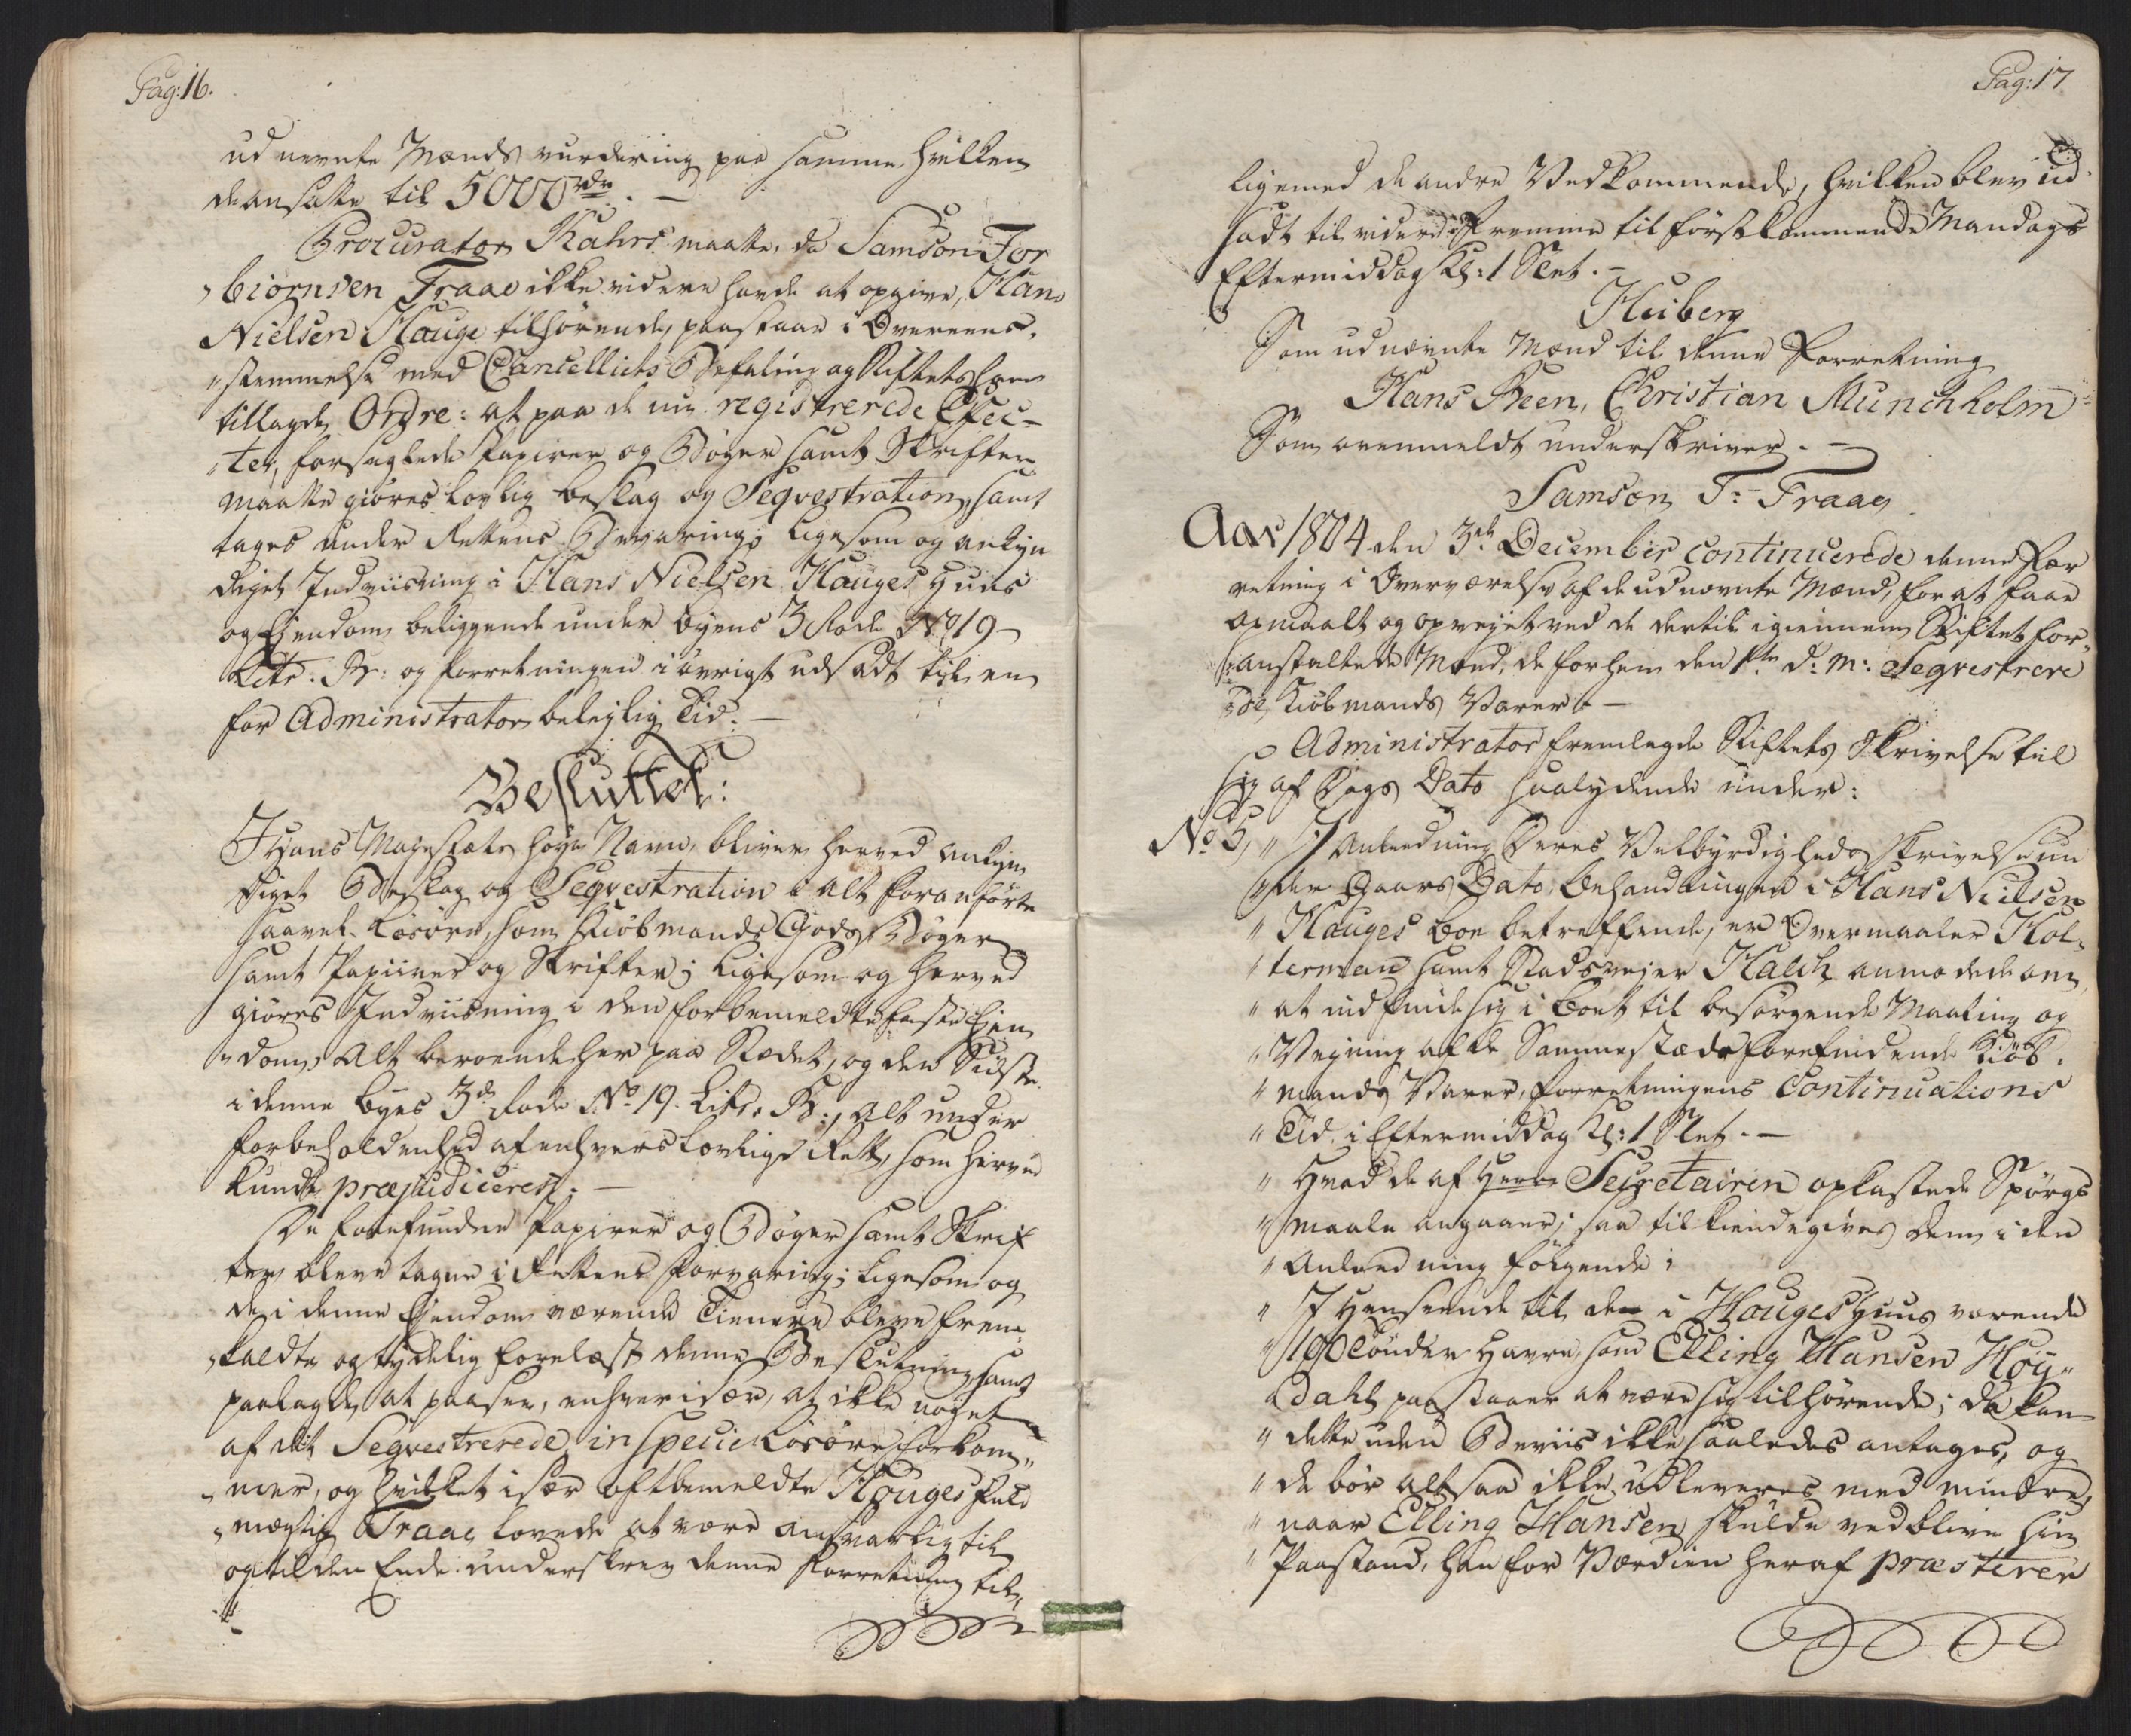 Pag: 16.
ud nevnte Mænds vurdering paa samme, hvilken
de ansatte til 5000 rdr. —
Procurator Kahrs maatte, da Samson Tor
„biörnsen Traae ikke videre havde at opgive, Hans
Nielsen Hauge tilhörende, paastaae i Övereens„
„stemmelse med Cancelliets Befaling og Stiftets ham
tillagde Ordre: at paa de nu registrerede Effec-
„ter, forseglede Papirer og Böger samt Skrifter
maatte giöres lovlig beslag og Seqvestration, samt
tages under Rettens Bevaring; ligesom og ankyn
diget Indviisning i Hans Nielsen Hauges Huus
og Ejendom, beliggende under byens 3 Rode No 19
Litr. B: og forretningen i övrigt udsadt til en
for Administrator belejlig Tid. —
Besluttet:
I Hans Majestæts höye Navn, bliver herved ankyn
diget Beslag og Seqvestration i alt foranförte
saavel Lösöre, som Kiöbmands Gods, Böger
samt Papiirer og Skrifter; ligesom og herved
giöres Indviisning i den forbemeldte faste Ejen
„dom, Alt beroende her paa Stædet, og den Sidste
i denne Byes 3de Rode No 19. Litr. B:, alt under
forbeholdenhed af enhvers lovlige Rett, som herved
kunde præjudiceres. —
De forefundne Papirer og Böger samt Skrif
ter bleve tagne i Rettens forvaring; ligesom og
de i denne Ejendom værende Tienere bleve frem
„kaldte og tydelig forelæst denne Beslutning, samt
paalagde, at paasee, enhver især, at ikke noget
af det Seqvestrerede, in specie Lösöre, forkom„
„mer, og hvilket især oftbemeldte Hauges fuld
„mægtig Traae lovede at være ansvarlig til
og til den Ende underskrev denne Forretning til„
Pag: 17
ligemed de andre Vedkommende, hvilken blev ud„
sadt til videre Fremme til förstkommende Mandags
Eftermiddag Kl: 1 Slet. —
Heiberg
Som udnævnte Mænd til denne Forretning
Hans Steen, Christian Munchholm
Som ovenmeldt underskriver. —
Samson T: Traae
Aar 1804 den 3de December continuerede denne For
retning i Overværelse af de udnævnte Mænd, for at faae
opmaalt og opvejet ved de dertil igiennem Stiftet for„
„anstaltede Mænd, de forhen den 1te d: m: Seqvestrere
„de, Kiöbmands Varer. —
Administrator fremlagde Stiftets Skrivelse til
sig af Dags Dato saalydende under:
No 5, „ I Anledning Deres Velbyrdigheds skrivelse un
„der Gaars Dato, Behandlingen i Hans Nielsen
„ Hauges Boe betreffende, er Overmaaler Hol„
„terman samt Stadsvejer Kalch anmodede om
„ at indfinde sig i Boet til besörgende Maaling og
„ Vejning af de Sammestæds forefindende Kiöb„
„ mands Varer, Forretningens Continuations
„ Tid i Eftermiddag Kl: 1 Slet. —
„ Hvad de af Herr Secretairen opkastede Spörgs
„ maale angaaer; saa tilkiendegives Dem i den
„ Anledning fölgende:
„ I Henseende til de i Hauges Huus værende
„ 190 Tönder Havre, som Elling Hansen Höy„
„dahl paastaaer at være sig tilhörende; da kan
„ dette uden Beviis ikke saaledes antages, og
„ de bör altsaa ikke udleveres med mindre,
„ naar Elling Hansen skulde vedblive sin
„ Paastand, han for Værdien heraf præsterer